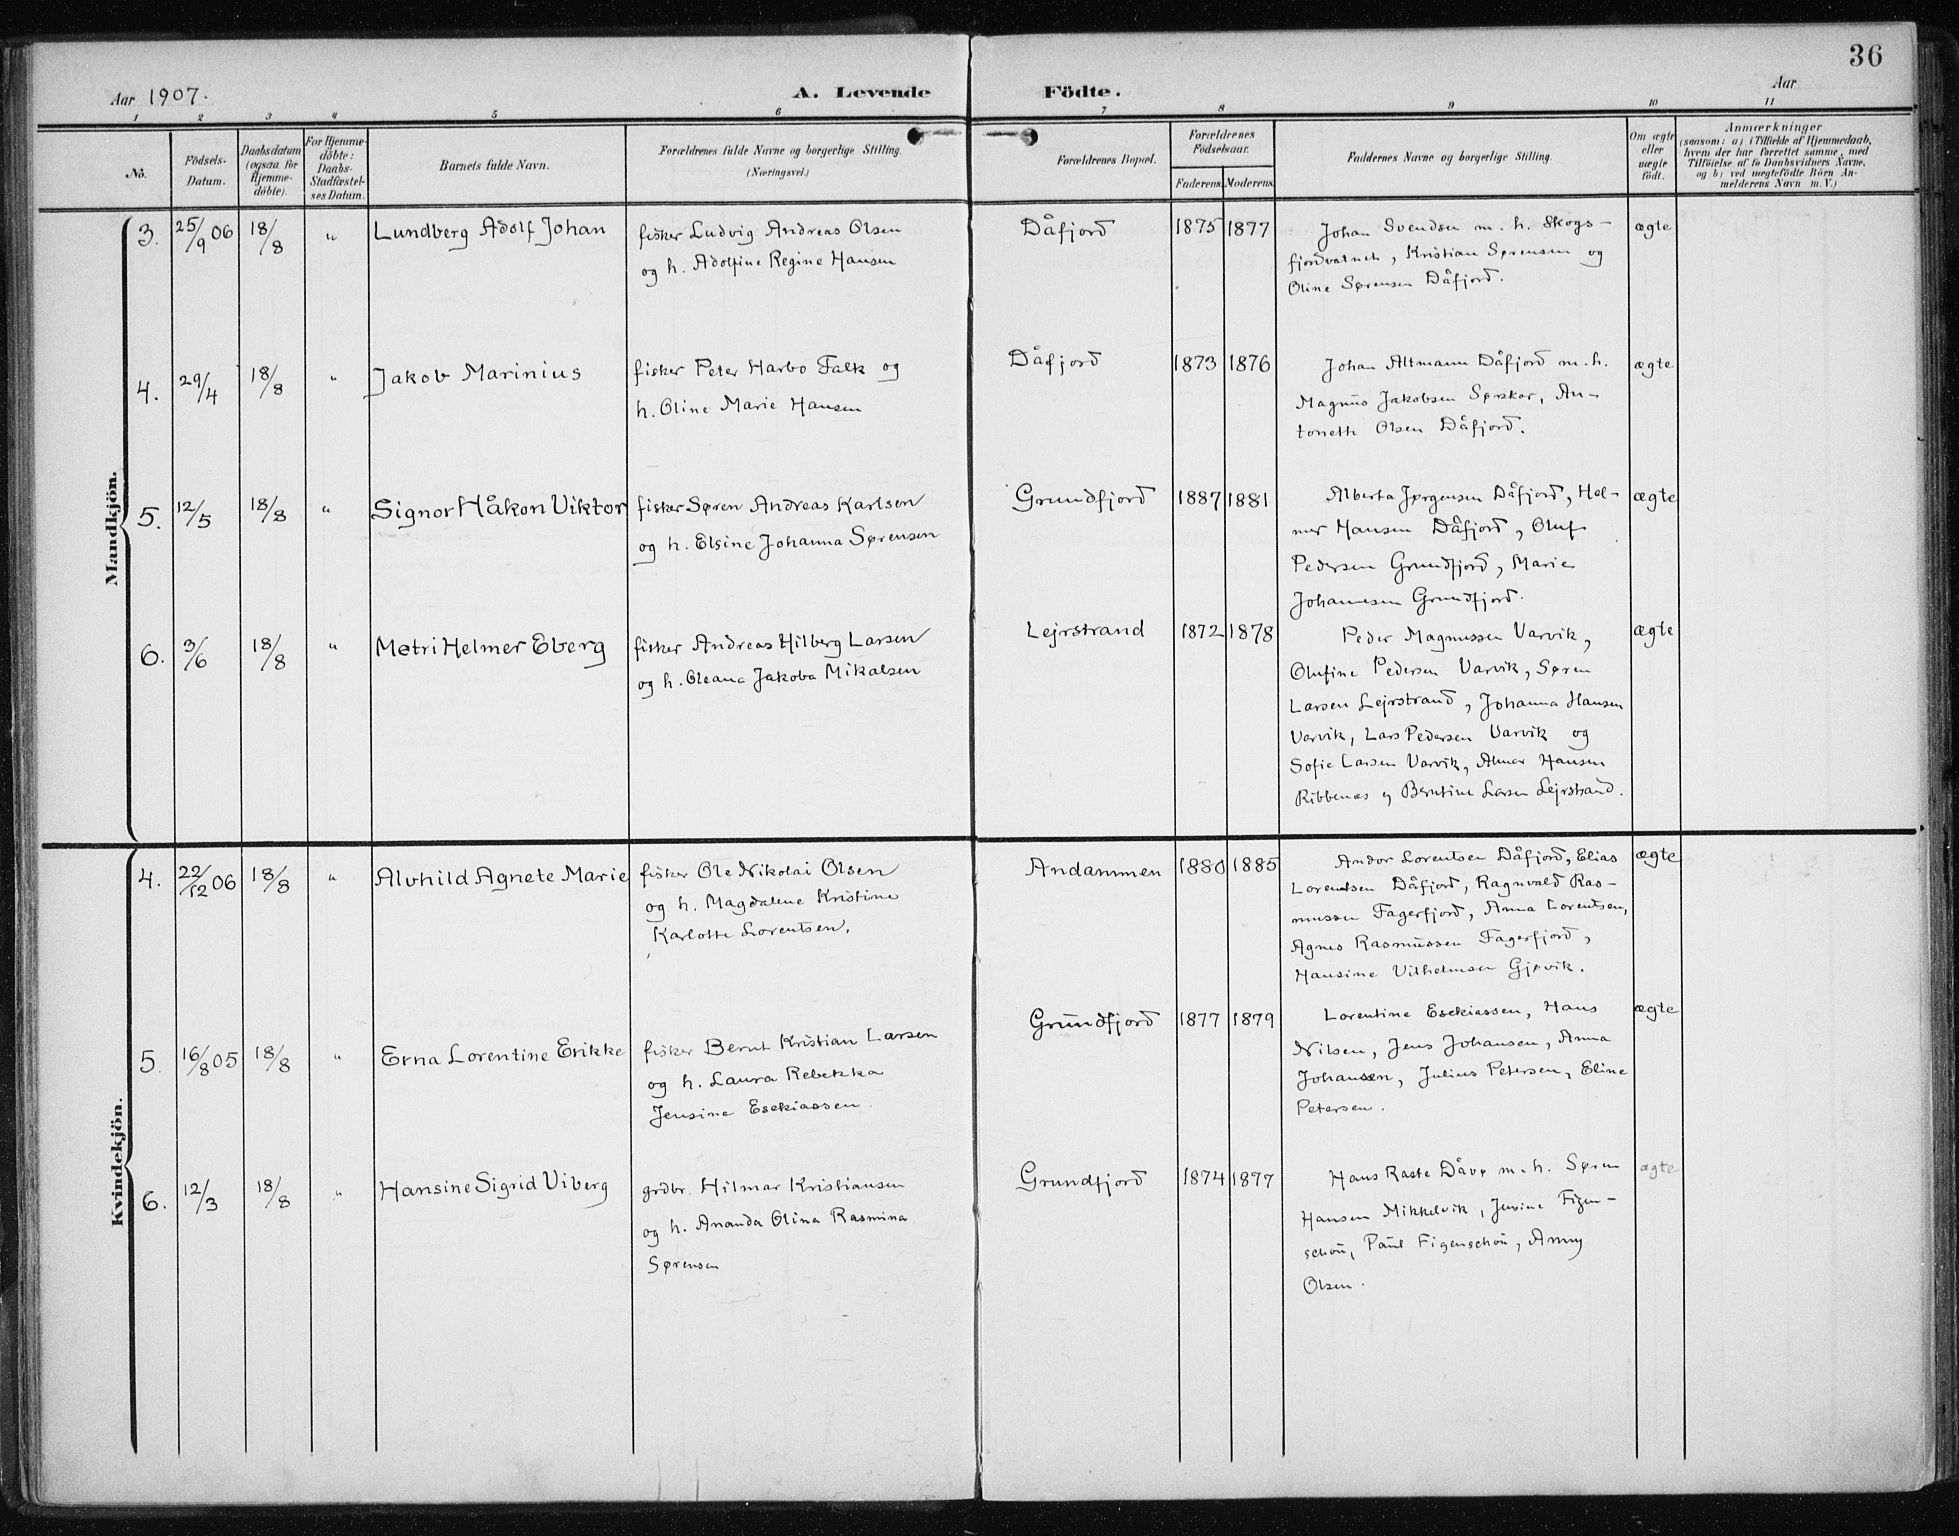 36
Aar 1907.
A. Levende Födte.
Aar
1 2 3 4 5 6 7 8 9 10 11
No.
Födsels-Datum.
Daabsdatum (ogsaa for Hjemme-döbte).
For Hjemme-döbte: Daabs-Stadfæstel-ses Datum.
Barnets fulde Navn.
Forældrenes fulde Navne og borgerlige Stilling.
(Næringsvei.)
Forældrenes Bopæl.
Forældrenes Födselsaar.
Faderens. Moderens.
Faddernes Navne og borgerlige Stilling.
Om ægte eller uægte födt.
Anmærkninger
(saasom: a) i Tilfælde af Hjemmedaab,
hvem der har forrettet samme, med
Tilföielse af to Daabsvidners Navne,
og b) ved uægtefödte Börn An-
melderens Navn m. V.)
Mandkjön.
3. 25/9 06 18/8 " Lundberg Adolf Johan
fisker Ludvig Andreas Olsen
og h. Adolfine Regine Hansen
Dåfjord 1875 1877
Johan Svendsen m. h. Skogs-
fjordvatnet, Kristian Sørensen og
Oline Sørensen Dåfjord.
ægte
4. 29/4 18/8 " Jakob Marinius
fisker Peter Harbo Falk og
h. Oline Marie Hansen
Dåfjord 1873 1876
Johan Altmann Dåfjord m. h.
Magnus Jakobsen Sørskar, An-
tonette Olsen Dåfjord.
ægte
5. 12/5 18/8 " Signor Håkon Viktor
fisker Søren Andreas Karlsen
og h. Elsine Johanna Sørensen
Grundfjord 1887 1881
Alberta Jørgensen Dåfjord, Hel-
mer Hansen Dåfjord, Oluf
Pedersen Grundfjord, Marie
Johannesen Grundfjord.
ægte
6. 3/6 18/8 " Metri Helmer Eberg
fisker Andreas Hilberg Larsen
og h. Oleana Jakoba Mikalsen
Lejrstrand 1872 1878
Peder Magnussen Varvik,
Olufine Pedersen Varvik, Søren
Larsen Lejrstrand, Johanna Hansen
Varvik, Lars Pedersen Varvik og
Sofie Larsen Varvik, Almar Hansen
Ribbenes og Berntine Larsen Lejrstrand.
ægte
Kvindekjön.
4. 22/12 06 18/8 " Alvhild Agnete Marie
fisker Ole Nikolai Olsen
og h. Magdalene Kristine
Karlotte Lorentsen,
Andammen 1880 1885
Andor Lorentsen Dåfjord, Elias
Lorentsen Dåfjord, Ragnvald Ras-
mussen Fagerfjord, Anna Lorentsen,
Agnes Rasmussen Fagerfjord,
Hansine Vilhelmsen Gjøvik.
ægte
5. 16/8 05 18/8 " Erna Lorentine Erikke
fisker Bernt Kristian Larsen
og h. Laura Rebekka
Jensine Esekiassen.
Grundfjord 1877 1879
Lorentine Esekiassen, Hans
Nilsen, Jens Johansen, Anna
Johansen, Julius Petersen, Eline
Petersen.
ægte
6. 12/3 18/8 " Hansine Sigrid Viberg
grdbr. Hilmar Kristiansen
og h. Ananda Olina Rasmina
Sørensen
Grundfjord 1874 1877
Hans Raste Dåvø m. h. Søren
Hansen Mikkelvik, Jensine Figen-
schou, Paul Figenschou, Anny
Olsen.
ægte